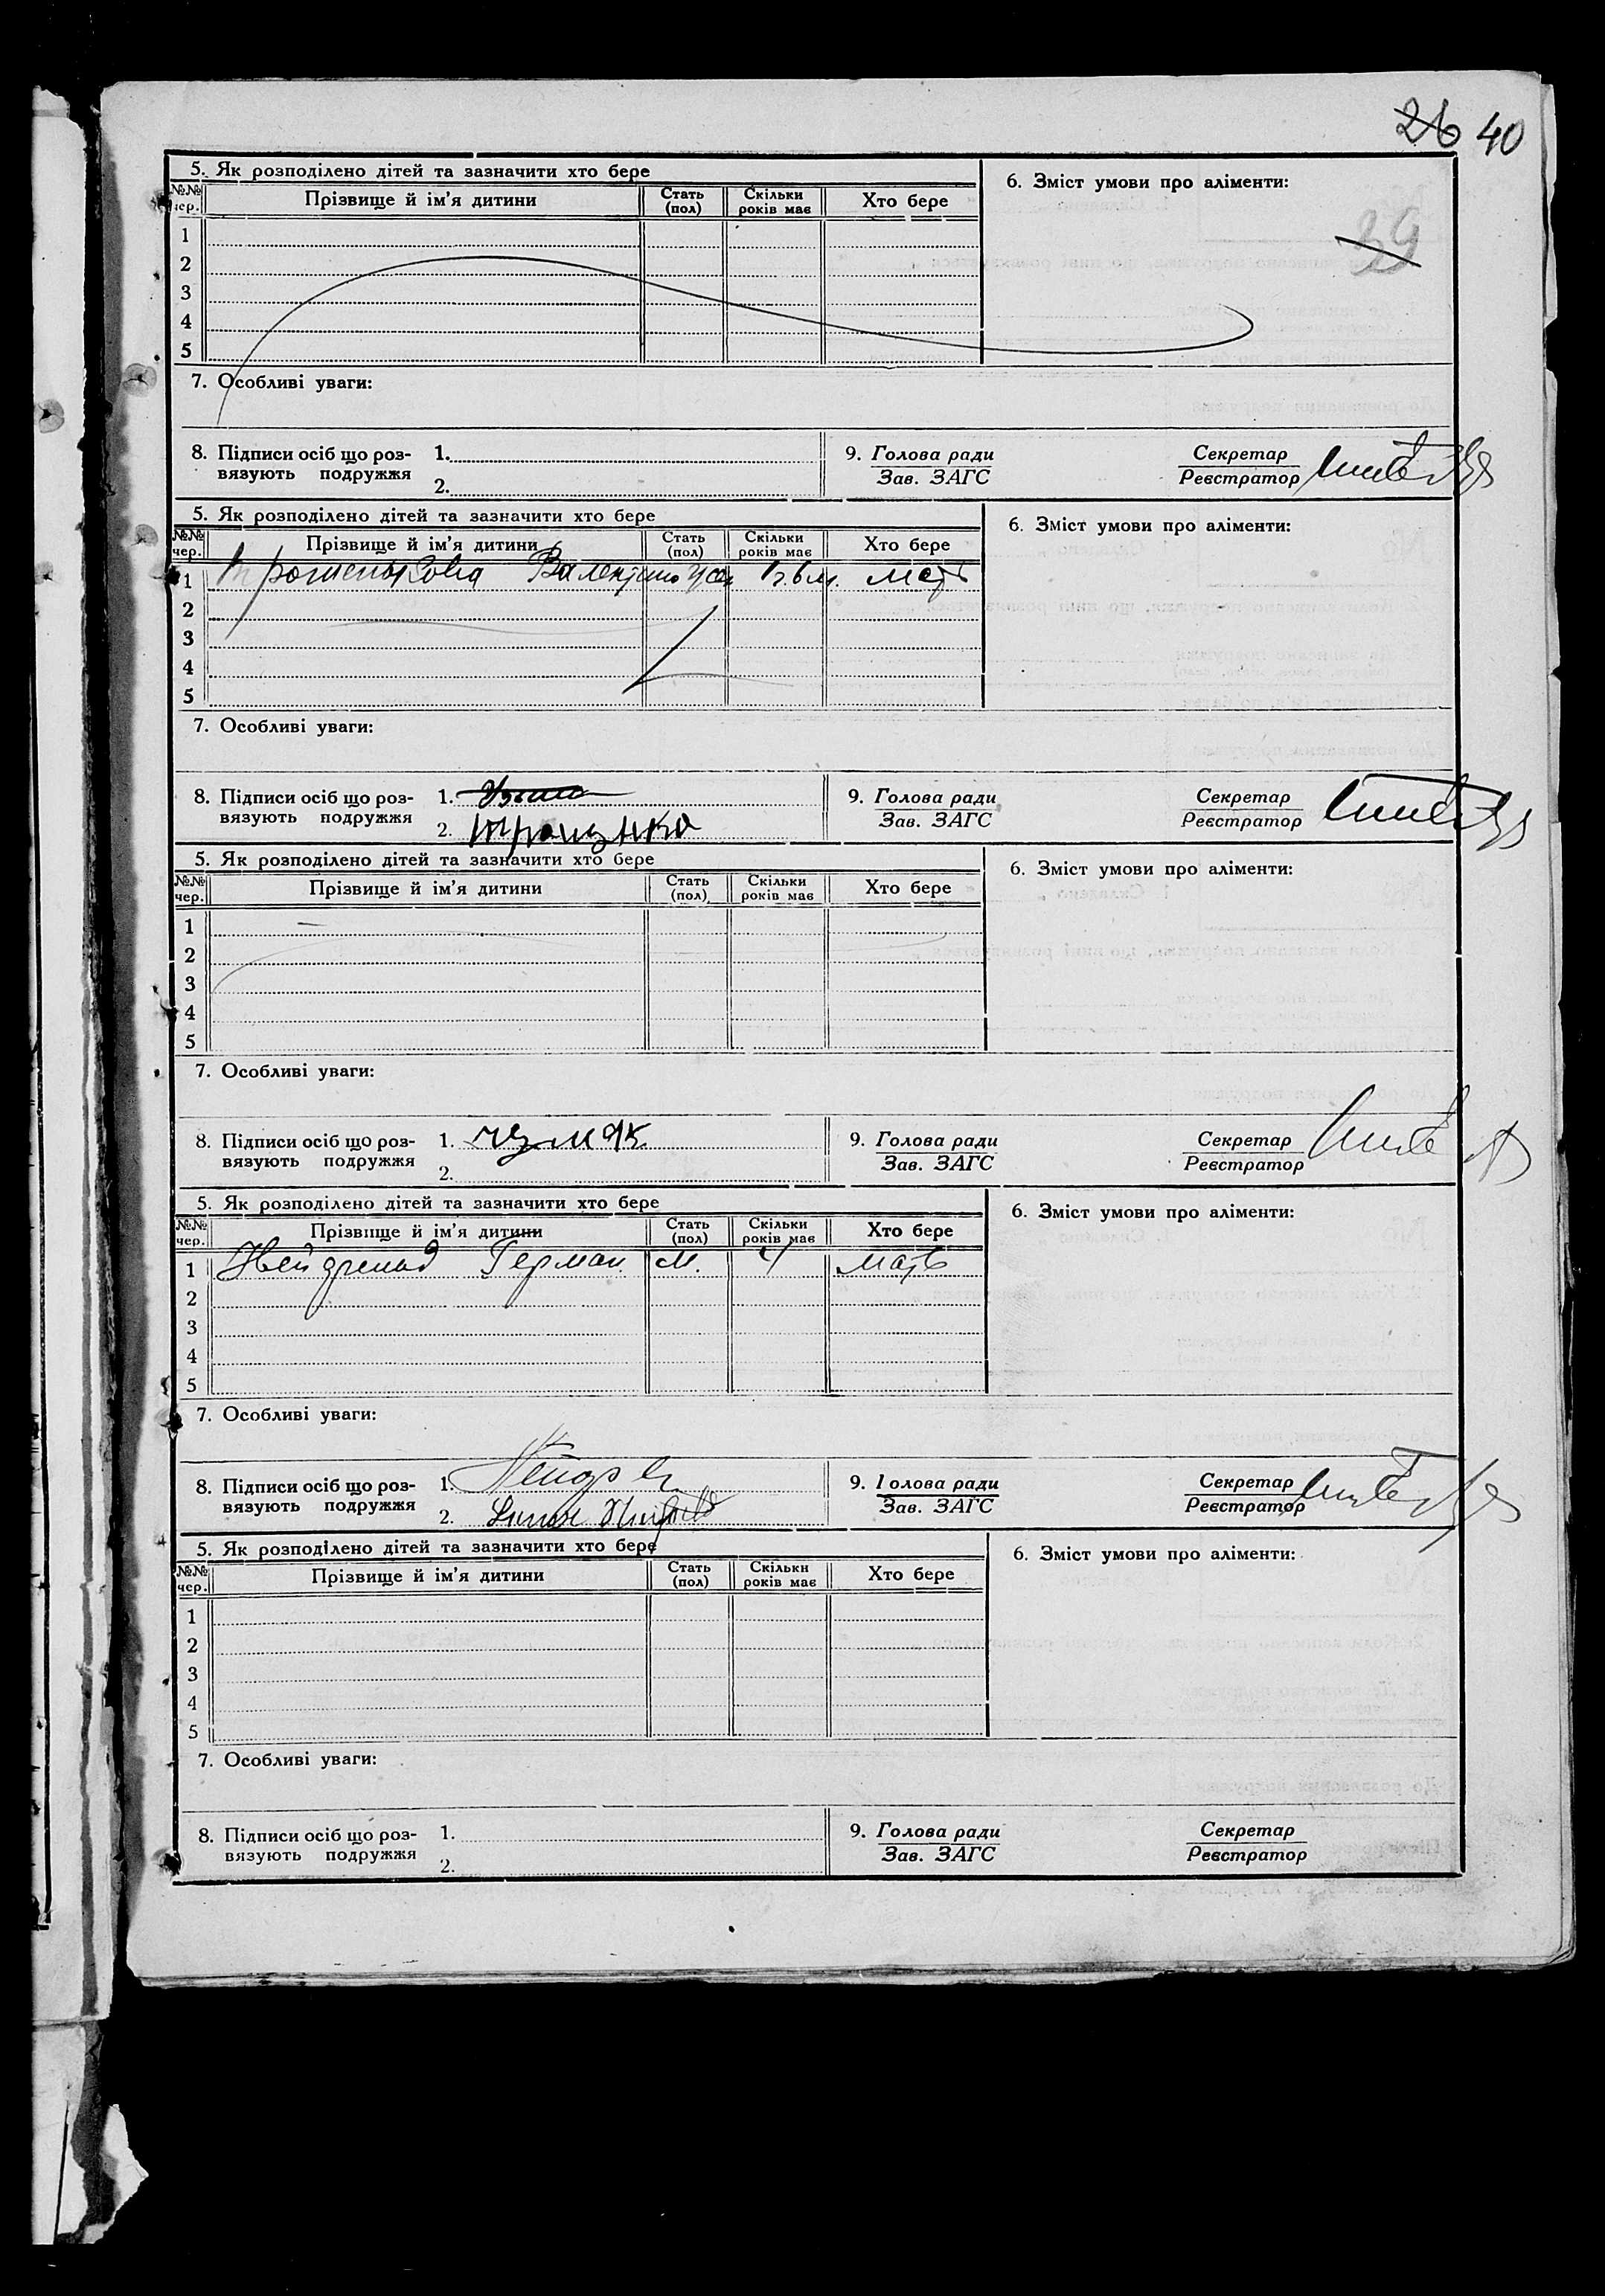 26 40
5. Як розподілено дітей та зазначити хто бере
6. Зміст умови про аліменти:
№№ чер. Прізвище й ім'я дитини Стать (пол) Скільки років має Хто бере
39
1
2
3
4
5
7. Особливі уваги:
8. Підписи осіб що роз- 1. 9. Голова ради Секретар
вязують подружжя 2. Зав. ЗАГС Реєстратор
5. Як розподілено дітей та зазначити хто бере
6. Зміст умови про аліменти:
№№ чер. Прізвище й ім'я дитини Стать (пол) Скільки років має Хто бере
1 жен 1г. 6 м. мать
2
3
4
5
7. Особливі уваги:
8. Підписи осіб що роз- 1. 9. Голова ради Секретар
вязують подружжя 2. Зав. ЗАГС Реєстратор
5. Як розподілено дітей та зазначити хто бере
6. Зміст умови про аліменти:
№№ чер. Прізвище й ім'я дитини Стать (пол) Скільки років має Хто бере
1 —
2
3
4
5
7. Особливі уваги:
8. Підписи осіб що роз- 1. 9. Голова ради Секретар
вязують подружжя 2. Зав. ЗАГС Реєстратор
5. Як розподілено дітей та зазначити хто бере
6. Зміст умови про аліменти:
№№ чер. Прізвище й ім'я дитини Стать (пол) Скільки років має Хто бере
1 Герман м. 4 мать
2
3
4
5
7. Особливі уваги:
8. Підписи осіб що роз- 1. 9. Голова ради Секретар
вязують подружжя 2. Зав. ЗАГС Реєстратор
5. Як розподілено дітей та зазначити хто бере
6. Зміст умови про аліменти:
№№ чер. Прізвище й ім'я дитини Стать (пол) Скільки років має Хто бере
1
2
3
4
5
7. Особливі уваги:
8. Підписи осіб що роз- 1. 9. Голова ради Секретар
вязують подружжя 2. Зав. ЗАГС Реєстратор